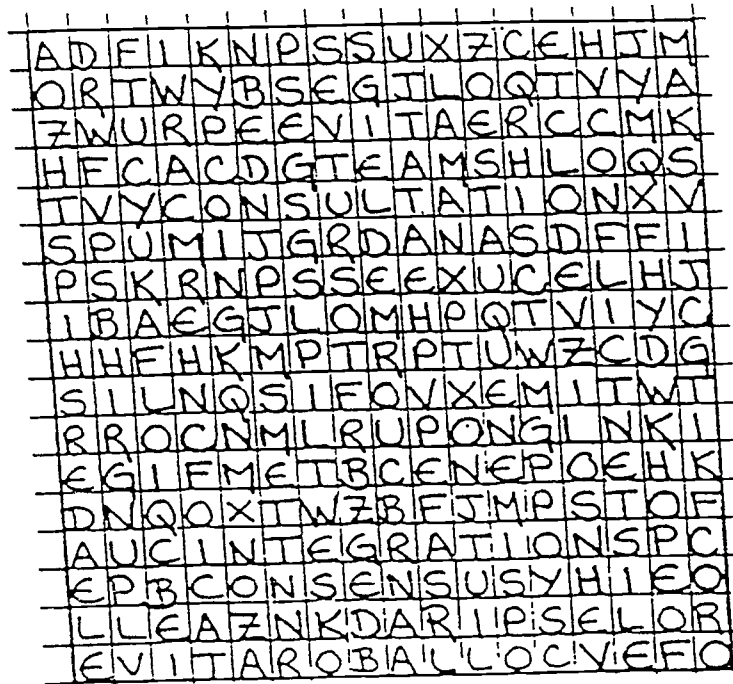 A D F I K N P S S U X Z C E H J M
O R T W Y B S E G J L O Q T V Y A
Z W U R P E E V I T A E R C C M K
H F C A C D G T E A M S H L O Q S
T V Y C O N S U L T A T I O N X V
S P U M I J G R D A N A S D F F I
P S K R N P S S E E X U C E L H J
I B A E G J L O M H P Q T V I Y C
H H F H K M P T R P T U W Z C D G
S I L N Q S I F O V X E M I T W T
R R O C N M L R U P O N G I N K I
E G I F M E T B C E N E P O E H K
D N Q O X T W Z B F J M P S T O F
A U C I N T E G R A T I O N S P C
E P B C O N S E N S U S Y H I E O
L L E A Z N K D A R I P S E L O R
E V I T A R O B A L L O C V E F O